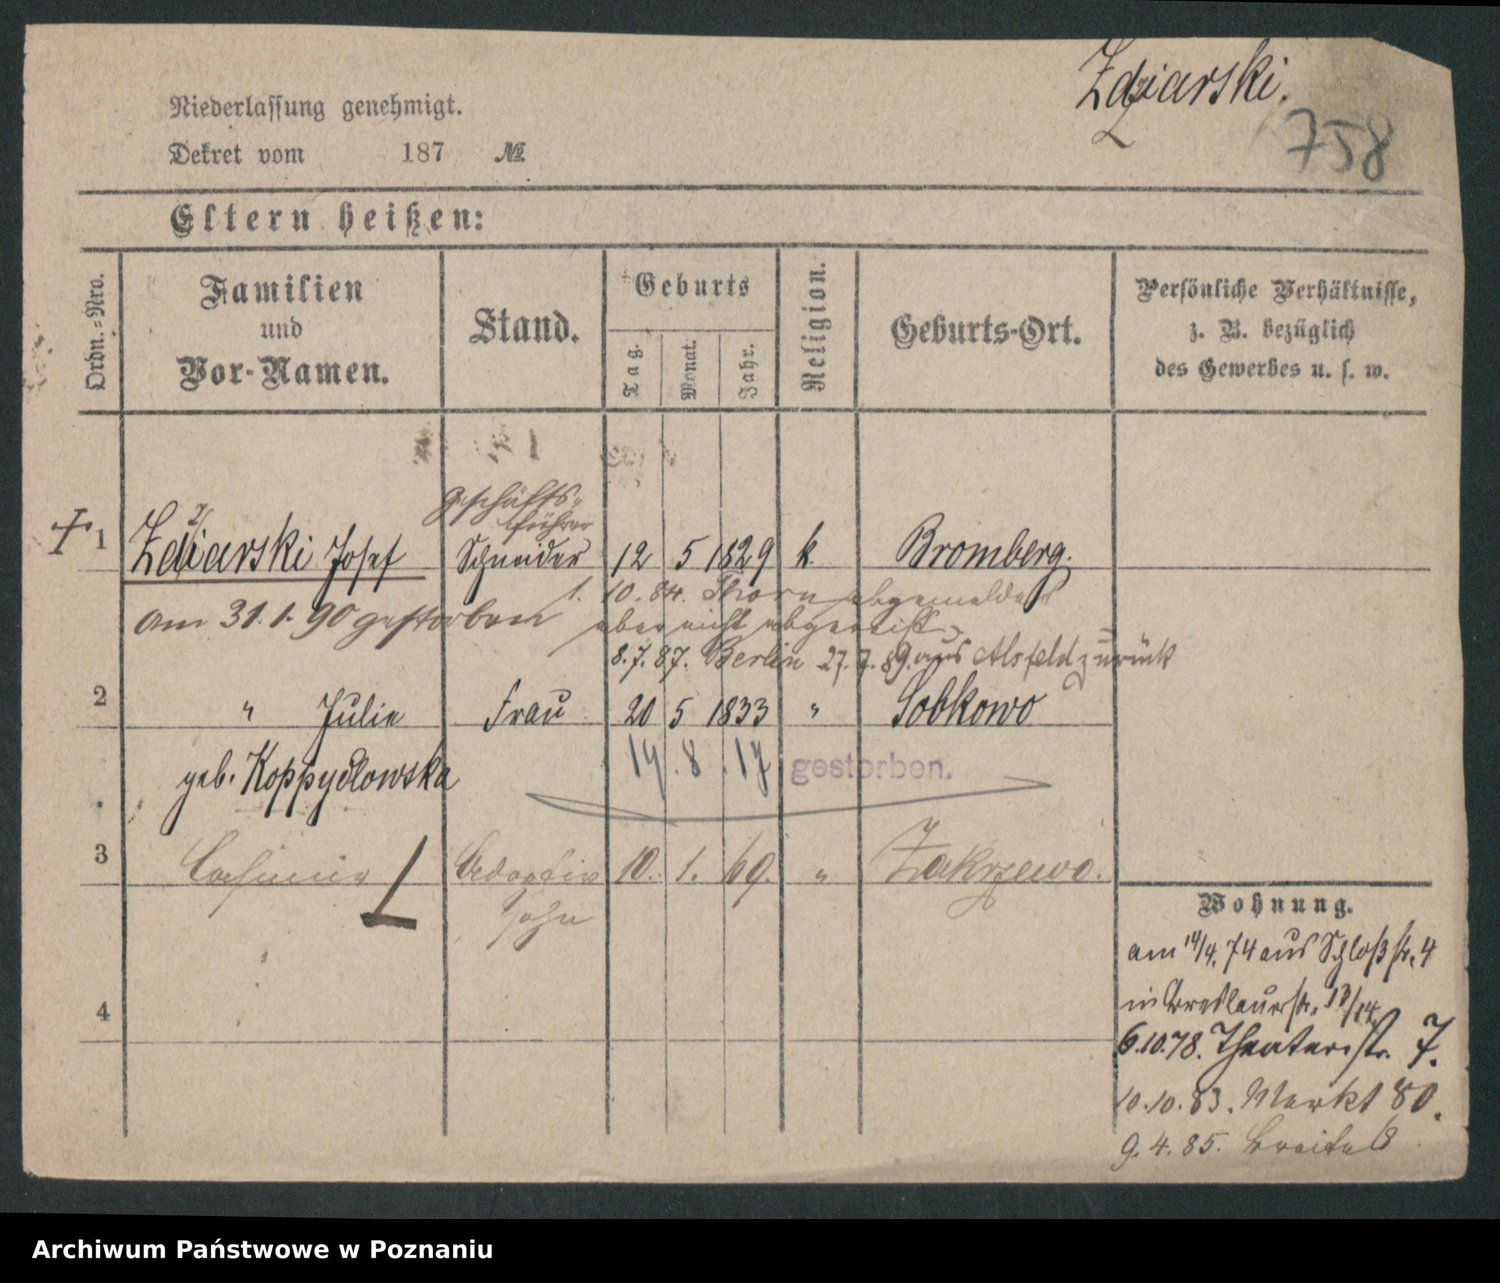 Zdziarski.
758
Niederlassung genehmigt.
Dekret vom 187 №
Eltern heißen:
Ordn.-Nro.
Familien
und
Vor-Namen.
Stand.
Geburts
Tag.
Monat.
Jahr.
Religion.
Geburts-Ort.
Persönliche Verhältnisse,
z. B. bezüglich
des Gewerbes u. s. w.
Geschäfts-
führer
1 Zdziarski Josef Schneider 12 5 1829 k. Bromberg.
am 31.1.90 gestorben
1. 10.84. Thorn abgemeldet
aber nicht abgereist
8.7.87. Berlin 27.7.89. aus Alsfeld zurück
2 " Julie Frau 20 5 1833 " Sobkowo
geb. Koppydlowska
14.8.17 gestorben.
3 Casimir Adoptiv 10. 1. 69. " Zakrzewo.
Sohn
4
Wohnung.
am 14/4. 74 aus Schloßstr. 4
in Breslauerstr. 13/14.
6.10.78. Theaterstr. 7.
10.10.83. Markt 80.
9.4.85. Breite 8
Archiwum Państwowe w Poznaniu